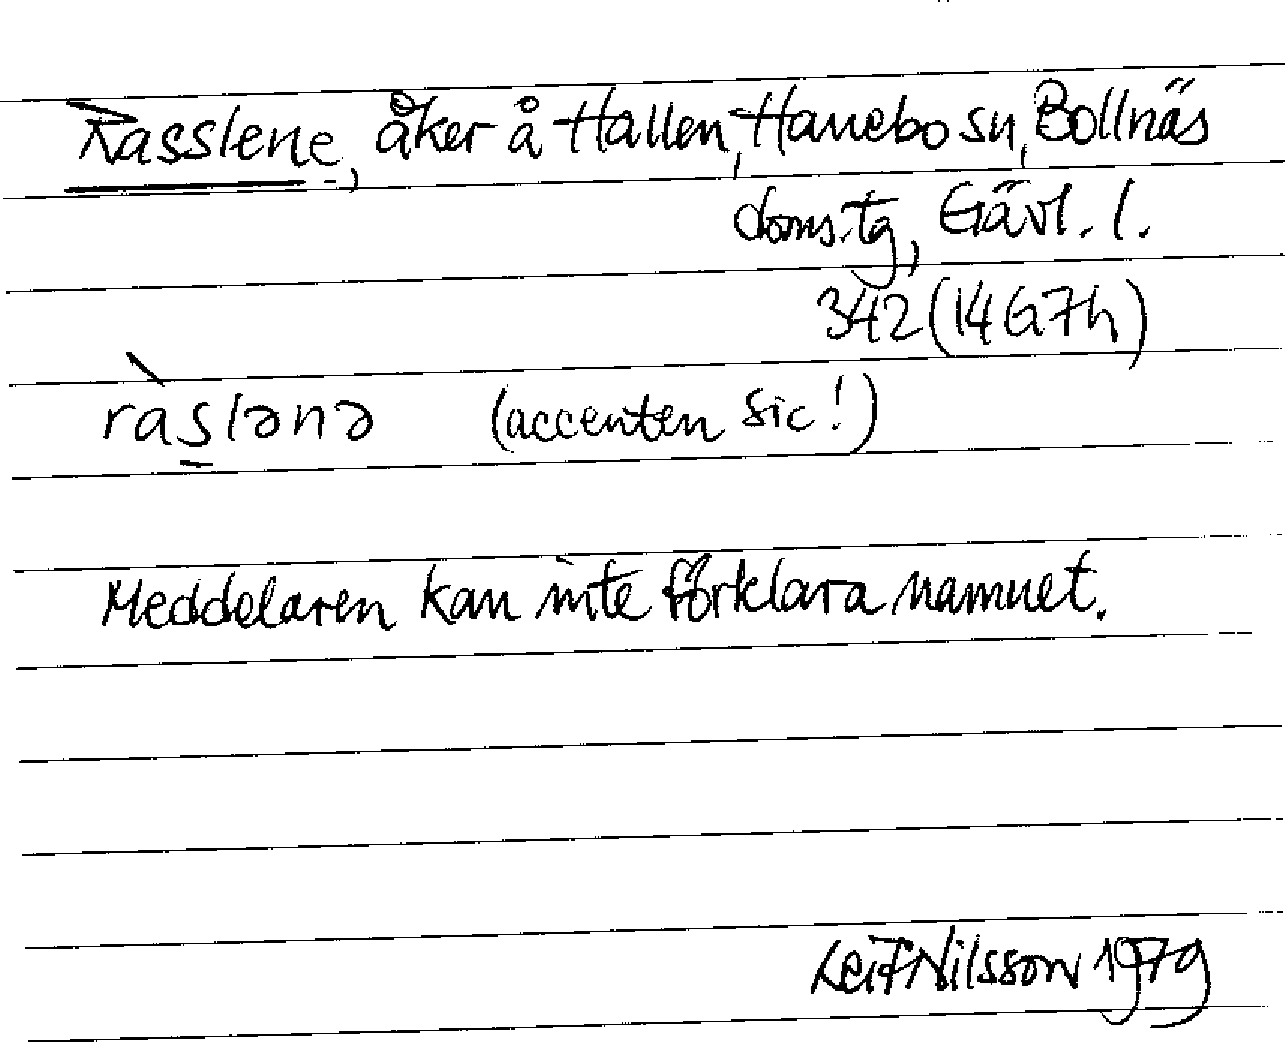 Rasslene, åker å Hallen, Hanebo sn, Bollnäs
doms.tg, Gävl. l.
342 (14G7h)
ràs̠lənə (accenten sic!)
Meddelaren kan inte förklara namnet.
Leif Nilsson 1979